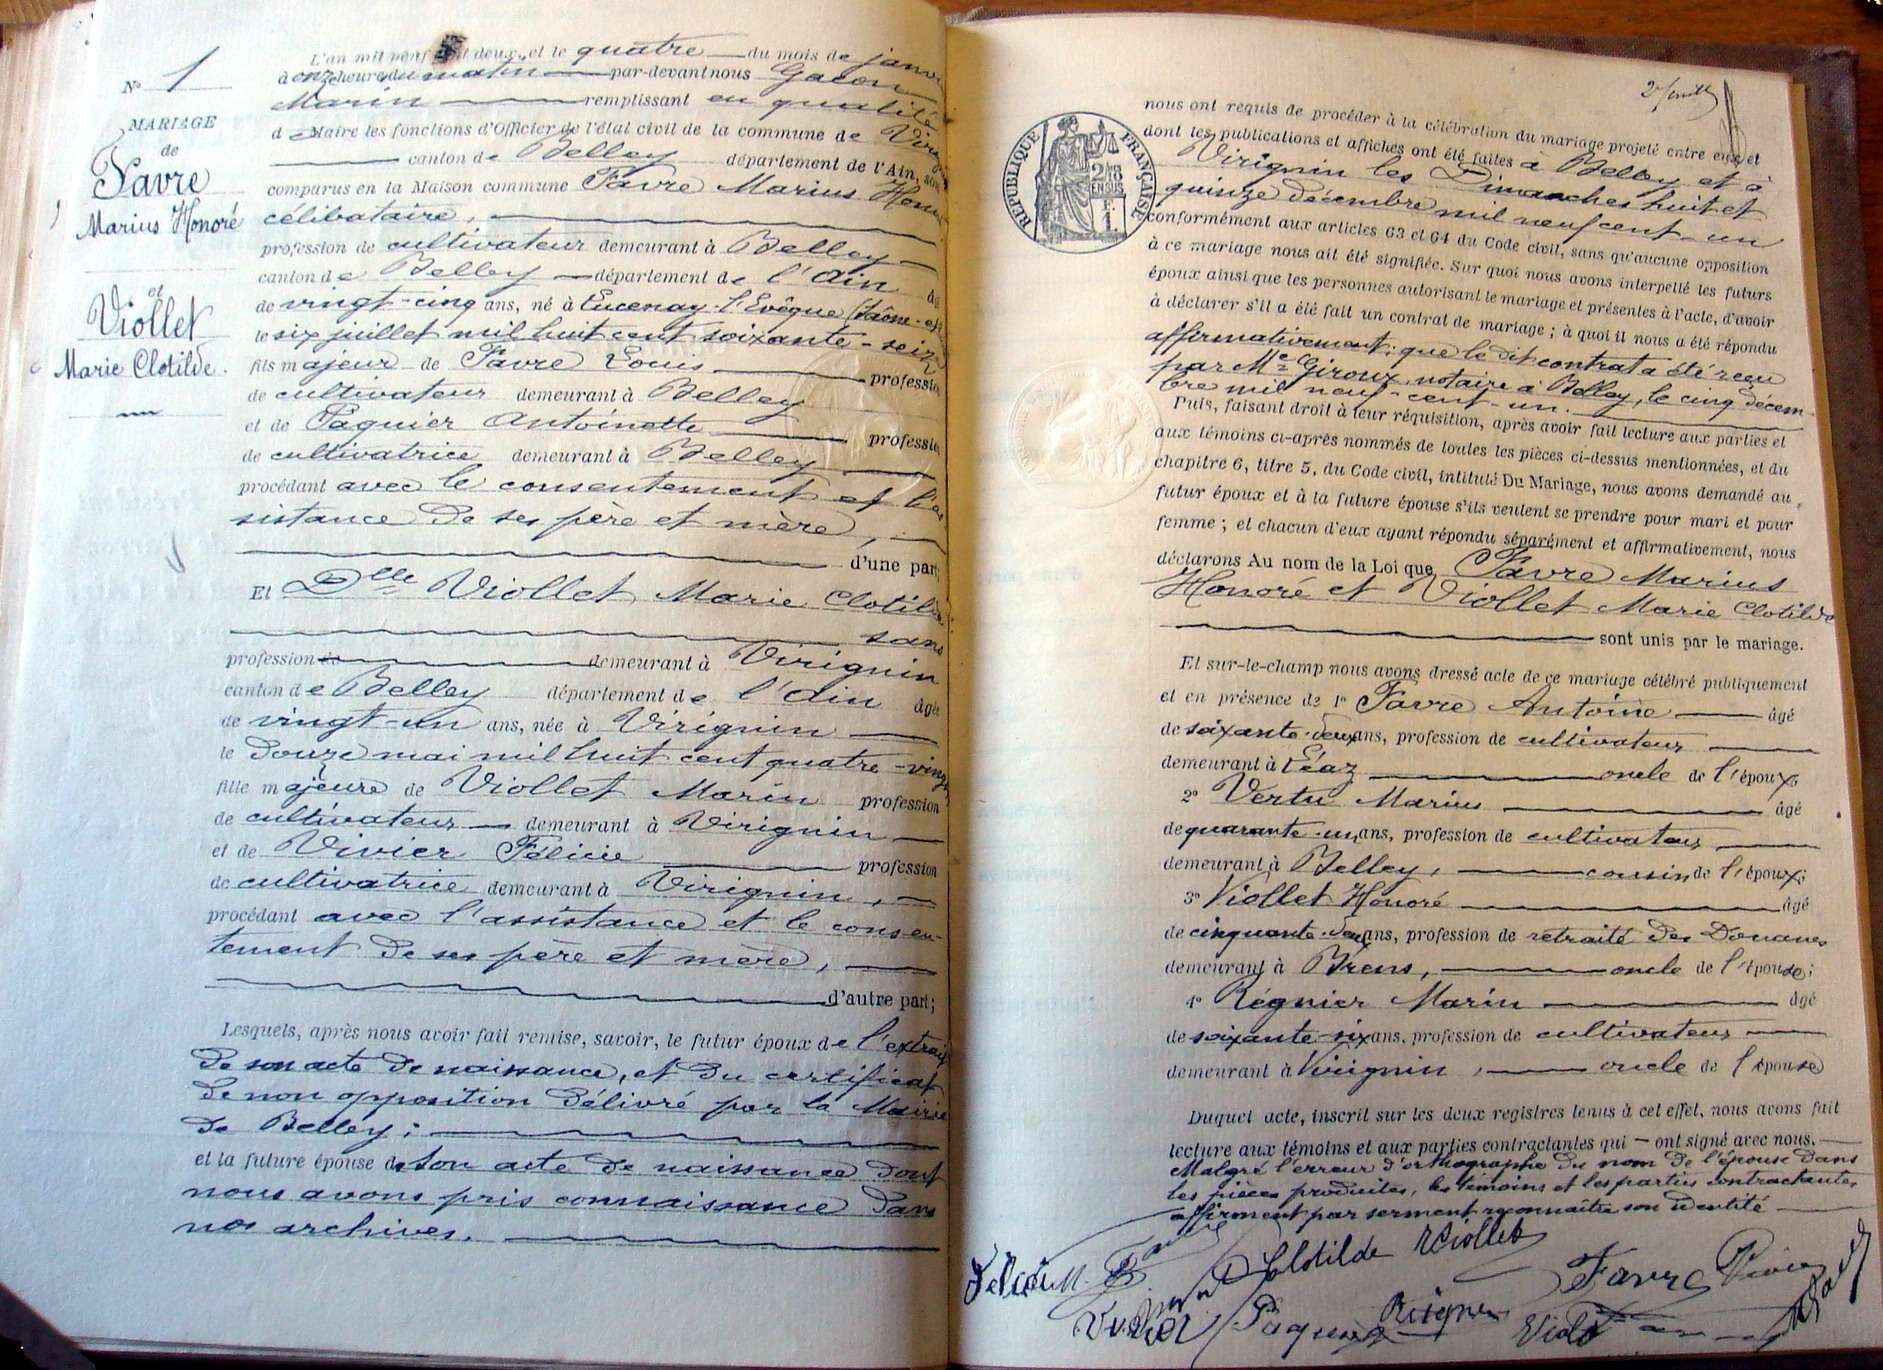 N° 1
MARIAGE
de
Favre
Marius Honoré
et
Viollet
Marie Clotilde.
L'an mil neuf cent deux, et le quatre du mois de janv
à onze heures du matin par-devant nous Gacon
Marin remplissant en qualité
de Maire les fonctions d'Officier de l'état civil de la commune de Virignin
canton de Belley département de l'Ain, sont
comparus en la Maison commune Favre Marius Honoré
célibataire,
profession de cultivateur demeurant à Belley
canton de Belley département de l'Ain âgé
de vingt-cinq ans, né à Lucenay-l'Evêque (Saône-et-
le six juillet mil huit cent soixante-seize
fils majeur de Favre Louis profession
de cultivateur demeurant à Belley
et de Paquier Antoinette profession
de cultivatrice demeurant à Belley
procédant avec le consentement et l'as
sistance de ses père et mère,
d'une part;
Et Dlle Viollet Marie Clotilde
sans
profession de demeurant à Virignin
canton de Belley département de l'Ain âgée
de vingt-un ans, née à Virignin
le douze mai mil huit cent quatre-vingt
fille majeure de Viollet Marin profession
de cultivateur demeurant à Virignin
et de Vivier Félicie profession
de cultivatrice demeurant à Virignin,
procédant avec l'assistance et le consen-
tement de ses père et mère,
d'autre part;
Lesquels, après nous avoir fait remise, savoir, le futur époux de l'extrait
de son acte de naissance, et du certificat
de non opposition délivré par la Mairie
de Belley;
et la future épouse de son acte de naissance dont
nous avons pris connaissance dans
nos archives.
2e feuillet
RÉPUBLIQUE FRANÇAISE
2/10es
EN SUS
1 F.
nous ont requis de procéder à la célébration du mariage projeté entre eux et
dont les publications et affiches ont été faites à Belley et à
Virignin les Dimanches huit et
quinze décembre mil neuf cent un
conformément aux articles 63 et 64 du Code civil, sans qu'aucune opposition
à ce mariage nous ait été signifiée. Sur quoi nous avons interpellé les futurs
époux ainsi que les personnes autorisant le mariage et présentes à l'acte, d'avoir
à déclarer s'il a été fait un contrat de mariage; à quoi il nous a été répondu
affirmativement; que le dit contrat a été reçu
par Me Giroux, notaire à Belley, le cinq décem-
bre mil neuf-cent-un.
Puis, faisant droit à leur réquisition, après avoir fait lecture aux parties et
aux témoins ci-après nommés de toutes les pièces ci-dessus mentionnées, et du
chapitre 6, titre 5, du Code civil, intitulé Du Mariage, nous avons demandé au
futur époux et à la future épouse s'ils veulent se prendre pour mari et pour
femme; et chacun d'eux ayant répondu séparément et affirmativement, nous
déclarons Au nom de la Loi que Favre Marius
Honoré et Viollet Marie Clotilde
sont unis par le mariage.
Et sur-le-champ nous avons dressé acte de ce mariage célébré publiquement
et en présence de 1° Favre Antoine âgé
de soixante-deux ans, profession de cultivateur
demeurant à Léaz oncle de l'époux;
2° Vertu Marius âgé
de quarante-un ans, profession de cultivateur
demeurant à Belley, cousin de l'époux;
3° Viollet Honoré âgé
de cinquante-deux ans, profession de retraité des Douanes
demeurant à Brens, oncle de l'épouse;
4° Régnier Marin âgé
de soixante-six ans, profession de cultivateur
demeurant à Virignin, oncle de l'épouse
Duquel acte, inscrit sur les deux registres tenus à cet effet, nous avons fait
lecture aux témoins et aux parties contractantes qui – ont signé avec nous.
Malgré l'erreur d'orthographe du nom de l'épouse dans
les pièces produites, les témoins et les parties contractantes
affirment par serment reconnaître son identité
Clotilde Viollet
Favre